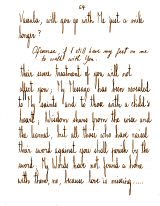 64
Vassula, will you go with Me just a while
longer?
Of course if I still have my feet on me
to walk with You.
Their severe treatment of you will not
affect you; My Message has been revealed
to My saints and to those with a child's
heart; Wisdom shuns from the wise and
the learned, but all those who have raised
their sword against you shall perish by the
sword. My Words have not found a home
with them, no, because love is missing.....